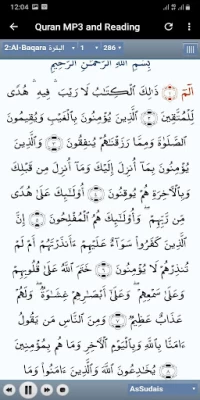 12:04
84%
Quran MP3 and Reading
2:Al-Baqara البقرة
1
286
بِسْمِ اللَّهِ الرَّحْمَٰنِ الرَّحِيمِ
الٓمٓ ۝ ذَٰلِكَ الْكِتَابُ لَا رَيْبَ ۛ فِيهِ ۛ هُدًى
لِّلْمُتَّقِينَ ۝ الَّذِينَ يُؤْمِنُونَ بِالْغَيْبِ وَيُقِيمُونَ
الصَّلَوٰةَ وَمِمَّا رَزَقْنَٰهُمْ يُنفِقُونَ ۝ وَالَّذِينَ
يُؤْمِنُونَ بِمَآ أُنزِلَ إِلَيْكَ وَمَآ أُنزِلَ مِن قَبْلِكَ
وَبِالْآخِرَةِ هُمْ يُوقِنُونَ ۝ أُوْلَٰٓئِكَ عَلَىٰ هُدًى
مِّن رَّبِّهِمْ ۖ وَأُوْلَٰٓئِكَ هُمُ الْمُفْلِحُونَ ۝ إِنَّ
الَّذِينَ كَفَرُوا سَوَآءٌ عَلَيْهِمْ ءَأَنذَرْتَهُمْ أَمْ لَمْ
تُنذِرْهُمْ لَا يُؤْمِنُونَ ۝ خَتَمَ اللَّهُ عَلَىٰ قُلُوبِهِمْ
وَعَلَىٰ سَمْعِهِمْ ۖ وَعَلَىٰٓ أَبْصَٰرِهِمْ غِشَٰوَةٌ ۖ وَلَهُمْ
عَذَابٌ عَظِيمٌ ۝ وَمِنَ النَّاسِ مَن يَقُولُ
ءَامَنَّا بِاللَّهِ وَبِالْيَوْمِ الْآخِرِ وَمَا هُم بِمُؤْمِنِينَ
۝ يُخَٰدِعُونَ اللَّهَ وَالَّذِينَ ءَامَنُوا وَمَا
AsSudais